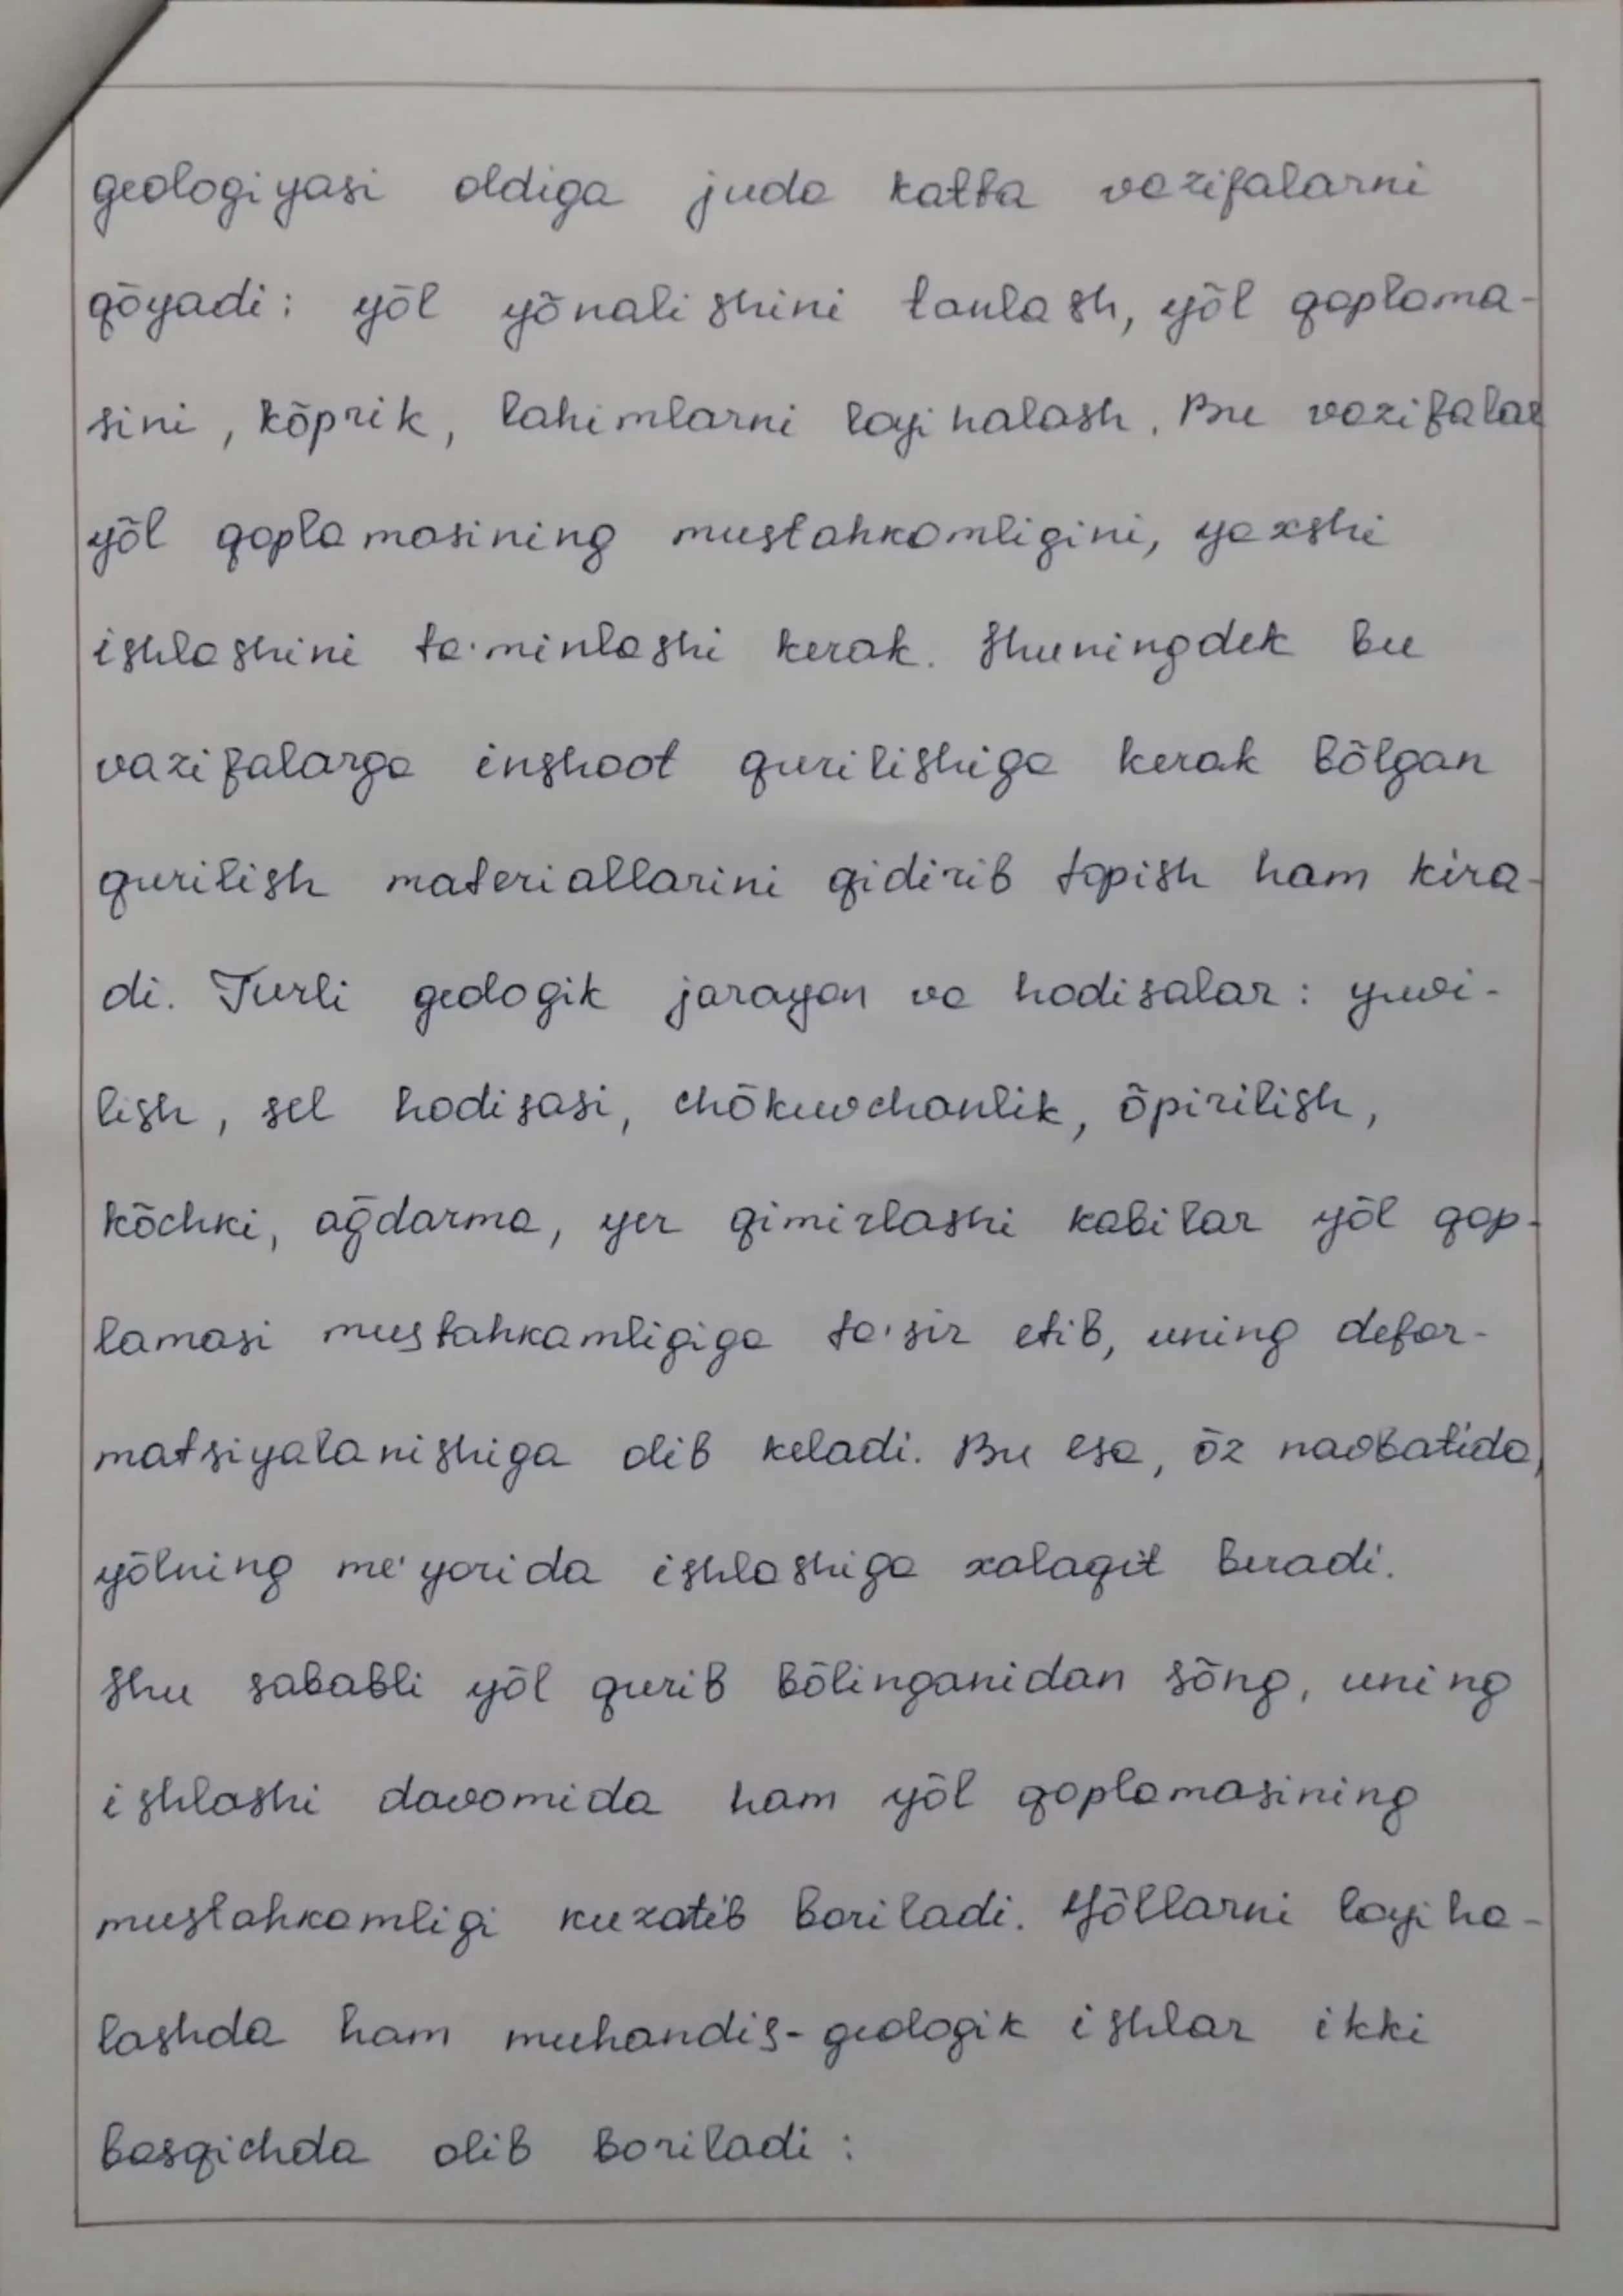 geologiyasi oldiga juda katta vazifalarni
qōyadi: yōl yōnalishini tanlash, yōl qoplama-
sini, kōprik, lahimlarni loyihalash. Bu vazifalar
yōl qoplamasining mustahkamligini, yaxshi
ishlashini ta'minlashi kerak. Shuningdek bu
vazifalarga inshoot qurilishiga kerak bōlgan
qurilish materiallarini qidirib topish ham kira-
di. Turli geologik jarayon va hodisalar: yuvi-
lish, sel hodisasi, chōkuvchanlik, ōpirilish,
kōchki, aḡdarma, yer qimirlashi kabilar yōl qop-
lamasi mustahkamligiga ta'sir etib, uning defor-
matsiyalanishiga olib keladi. Bu esa, ōz navbatida,
yōlning me'yorida ishlashiga xalaqit beradi.
Shu sababli yōl qurib bōlinganidan sōng, uning
ishlashi davomida ham yōl qoplamasining
mustahkamligi kuzatib boriladi. Yōllarni loyiha-
lashda ham muhandis-geologik ishlar ikki
bosqichda olib boriladi: